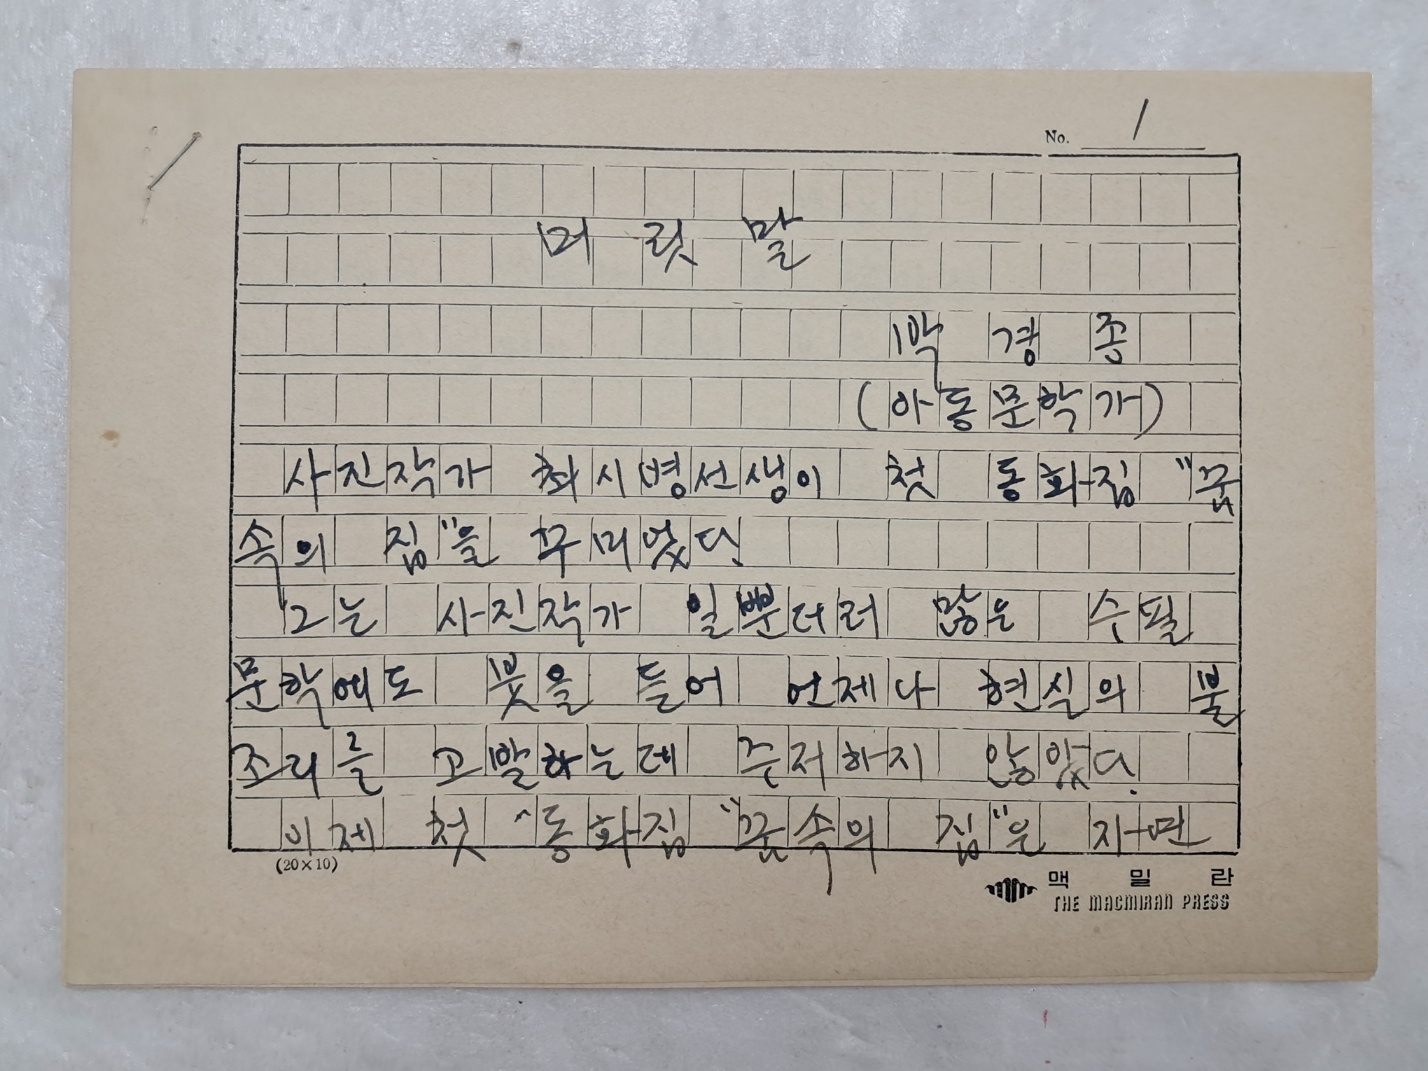 No. 1
머릿말
박경종
(아동문학가)
사진작가 최시병선생이 첫 동화집 "꿈
속의 집"을 꾸미었다.
그는 사진작가 일뿐더러 많은 수필
문학에도 붓을 들어 언제나 현실의 불
조리를 고발하는데 주저하지 않았다.
이제 첫 동화집 "꿈속의 집"은 자연
(20×10)
맥밀란
THE MACMIRAN PRESS